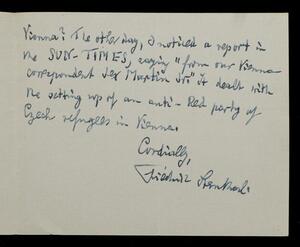 Vienna? The other day, I noticed a report in
the SUN-TIMES, saying "from our Vienna
correspondent" it dealt with
the setting up of an anti-Red party of
Czech refugees in Vienna.
Cordially,